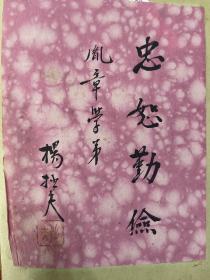 忠恕勤儉
胤章學弟
楊拙夫